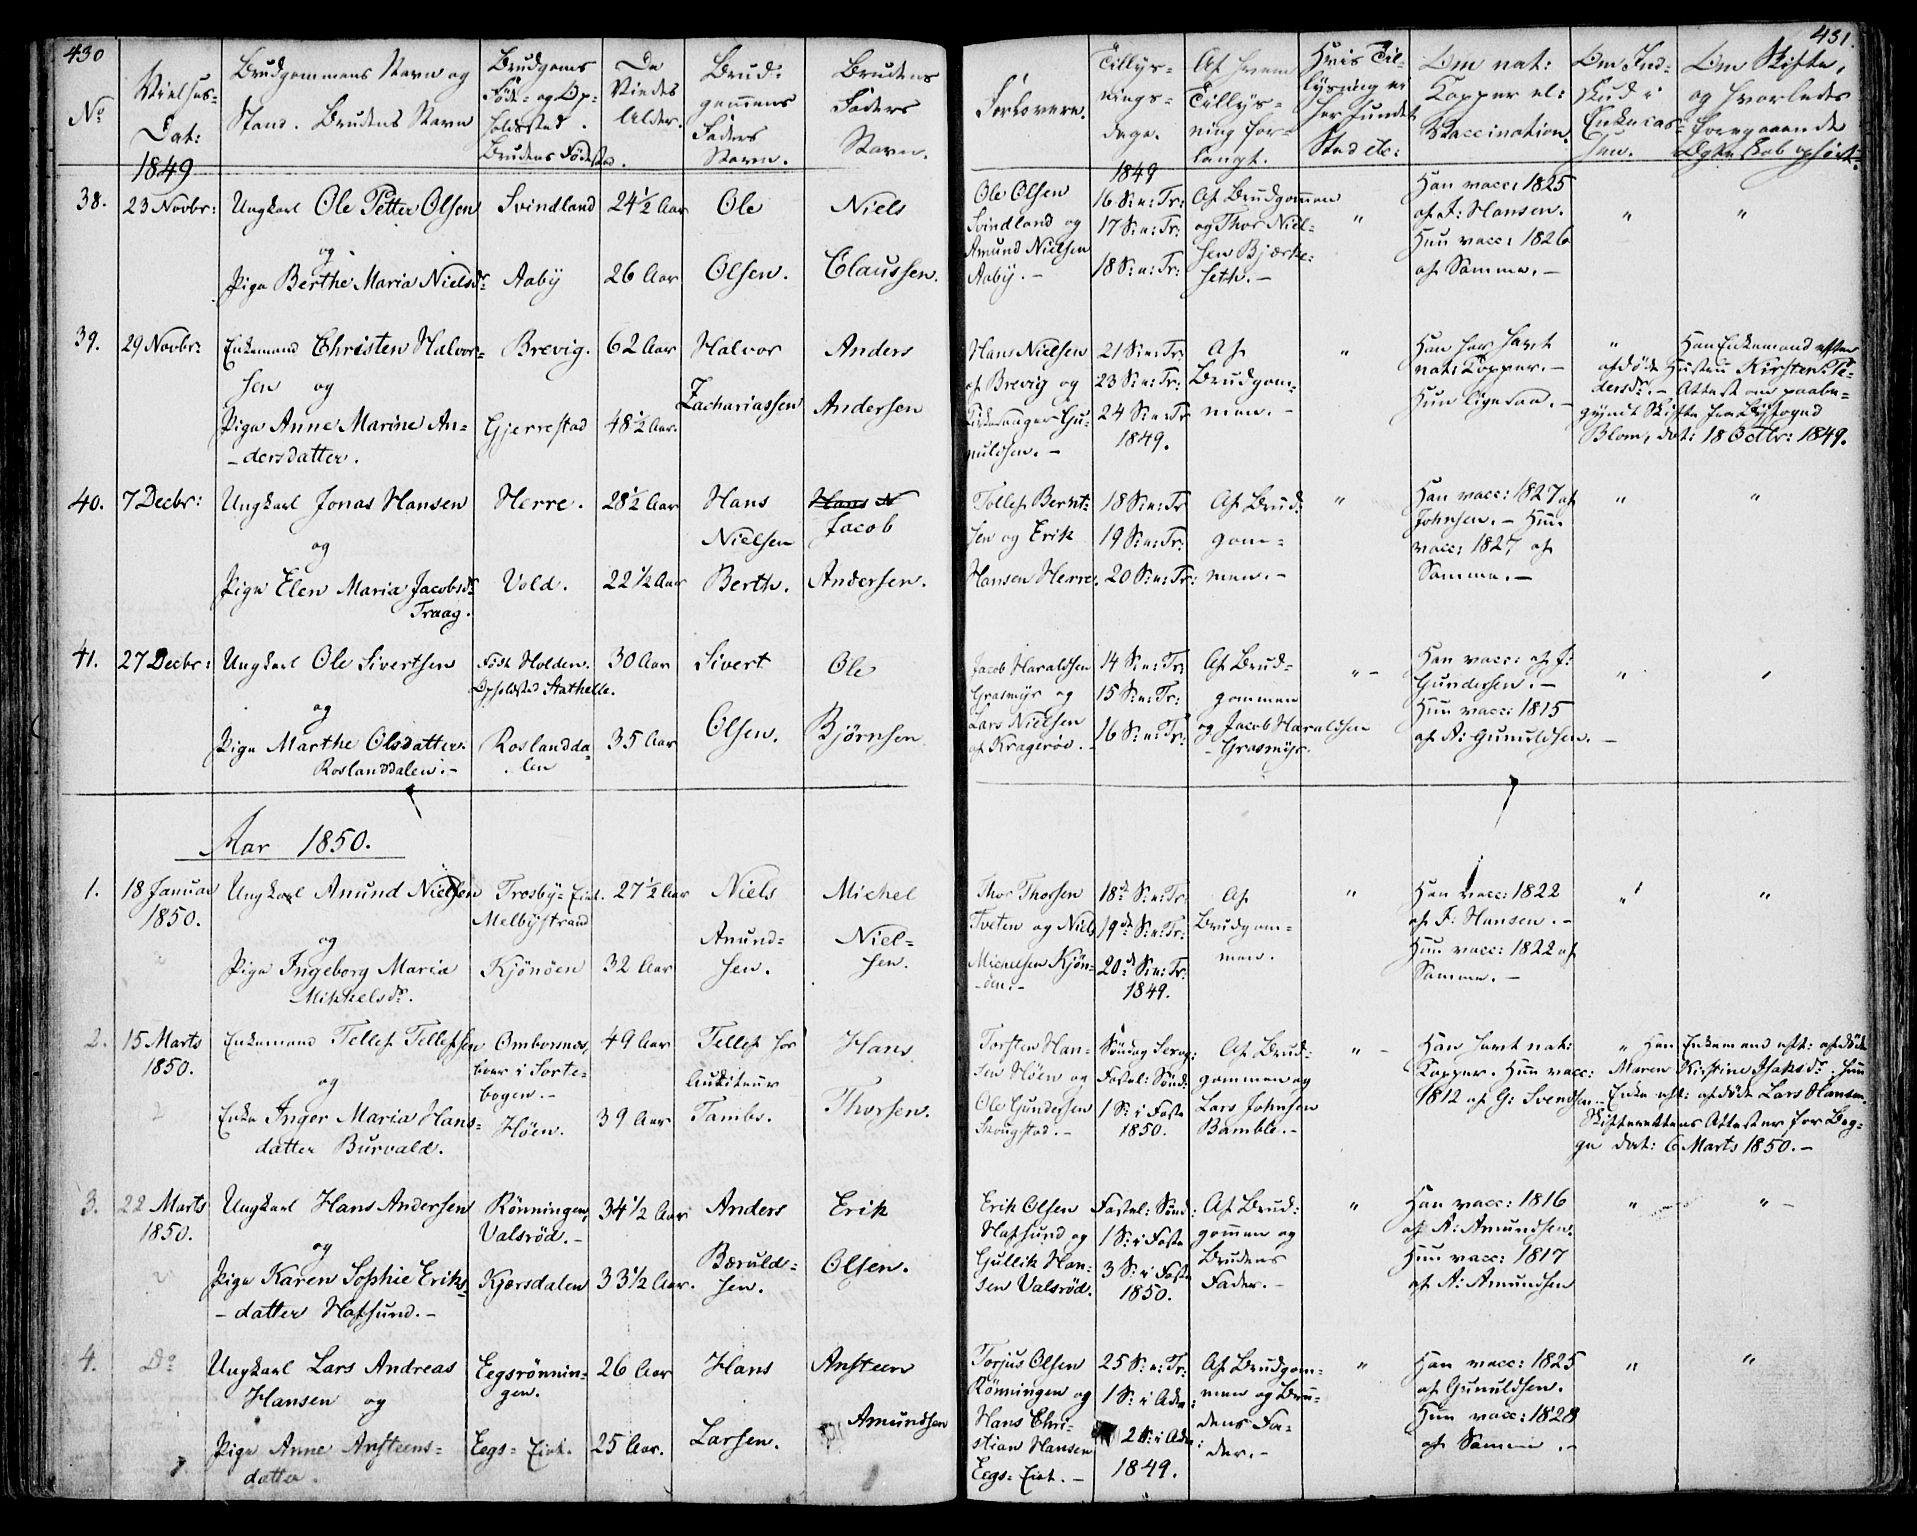 430
No
Vielses-
Dat:
1849
Brudgommens Navn og
Stand. Brudens Navn
Brudgoms
Føde- og Op-
holdssted.
Brudens Fødested.
De
Viedes
Alder.
Brud-
gommens
Faders
Navn.
Brudens
Faders
Navn.
38.
23 Novbr:
Ungkarl Ole Petter Olsen
og
Pige Berthe Maria Nielsdr
Svindland
Aaby
24½ Aar
26 Aar
Ole
Olsen.
Niels
Claussen.
39.
29 Novbr:
Enkemand Christen Halvor-
sen og
Pige Anne Marine An-
-dersdatter.
Brevig.
Gjerrestad
62 Aar
48½ Aar.
Halvor
Zachariassen
Anders
Andersen
40.
7 Decbr:
Ungkarl Jonas Hansen
og
Pige Elen Maria Jacobsdr
Traag.
Herre.
Vold.
28½ Aar
22½ Aar
Hans
Nielsen
Berth.
Hans N
Jacob
Andersen.
41.
27 Decbr:
Ungkarl Ole Sivertsen
og
Pige Marthe Olsdatter
Roslanddalen.-
Født Holden.
Opholdsted Stathelle.
Roslandda-
len
30 Aar
35 Aar
Sivert
Olsen.
Ole
Björnsen
Aar 1850.
1.
18 Januar
1850.
Ungkarl Anund Nielsen
og
Pige Ingeborg Maria
Mikkelsdr.
Trosby-Eiet.
Melbystrand
Kjönöen
27½ Aar
32 Aar
Niels
Anund-
sen.
Michel
Niel-
sen.
2.
15 Marts
1850.
Enkemand Tellef Tellefsen
og
Enke Inger Maria Hans-
datter Burvald.
Omborsnes,
boer i Sorte-
bogen.-
Höen.
49 Aar
39 Aar
Tellef for
Auditeur
Tambs.
Hans
Thorsen.
3.
22 Marts
1850.
Ungkarl Hans Andersen
og
Pige Karen Sophie Eriks-
-datter Hafsund.-
Rönningen,
Valsröd.-
Kjersdalen
34½ Aar
33½ Aar.
Anders
Bæruld-
sen.
Erik
Olsen.
4.
Do
Ungkarl Lars Andreas
Hansen og
Pige Anne Ansteens-
datter.
Eegsrönnin-
gen.
Eegs-Eiet.
26 Aar
25 Aar.
Hans
Larsen.
Ansteen
Amundsen
431.
Forlovere.
Tillys-
nings-
dage.
1849
Af hvem
Tillys-
ning for-
langt.
Hvis Til-
lysning ei
her fundet
Sted etc:
Om nat:
Kopper el:
Vaccination.
Om Ind-
skud i
Enkecas-
sen.
Om Skifte,
og hvorledes
foregaaende
Ægteskab opført.
Ole Olsen
Svindland og
Amund Nielsen
Aaby.-
16 S:e:Tr:
17 S:e:Tr:
18 S:e:Tr:
Af Brudgommen
og Thor Niel-
sen Bjerke-
seth.-
"
Han vacc: 1825
af F: Hansen.
Hun vacc: 1826
af Samme.-
"
"
Hans Nielsen
af Brevig og
Gu-
nuldsen.-
21 S:e:Tr:
23 S:e:Tr:
24 S:e:Tr
1849.
Af
Brudgom-
men.-
"
Han har havt
nat: Kopper.-
Hun ligesaa.-
"
Han Enkemand efter
afdøde Hustru Kirsten Pe-
dersdr.- Attest om paabe-
gyndt Skifte fra Byfoged
Blom, dat: 18 Octbr: 1849.
Tollef Bernt-
sen og Erik
Hansen Herre.
18 S:e:Tr
19 S:e:Tr:
20 S:e:Tr:
Af Brud-
gom-
men.-
"
Han vacc: 1827 af
Johnsen.- Hun
vacc: 1827 af
Samme.-
"
"
Jacob Haraldsen
Grasmyr og
Lars Nielsen
af Kragerøe.
14 S:e:Tr:
15 S:e:Tr:
16 S:e:Tr:
Af Brud-
gommen
og Jacob Haraldsen
- Grasmyr.
"-
Han vacc: af J:
Gundersen.-
Hun vacc: 1815
af A: Gunuldsen.-
"
"
Thor Thorsen
Tveten og Niels
Michelsen Kjön-
öen.-
18de S:e:Tr
19de S:e:Tr:
20de S:e:Tr:
1849.
Af
Brudgom-
men.
"
Han vacc: 1822
af F: Hansen.-
Hun vacc: 1822 af
Samme.-
"
"
Torsten Han-
sen Höen og
Ole Gundersen
Skougstad.-
Søndag Sexag:
Fastel: Sønd:
1 S: i Faste
1850.
Af Brud-
gommen og
Lars Johnsen
Bamble.-
"-
Han havt nat:
Kopper. Hun vacc:
1812 af G: Svendsen.-
" Han Enkemand eft: afdøde
Maren Kirstine Isaksdr. Hun
Enke eft: afdøde Lars Hansen.
Skifterettens Attester for Beg-
ge dat: 6 Marts 1850.-
Erik Olsen
Hafsund og
Gullik Han-
sen Valsröd.
Fastel: Sønd:
1 S: i Faste
3 S: i Faste
1850.
Af Brud-
gommen og
Brudens
Fader.-
"
Han vacc: 1816
af A: Amundsen.
Hun vacc: 1817
af A: Amundsen
"
"-
Torjus Olsen
Rönningen og
Hans Chri-
stian Hansen
Eegs-Eiet.-
25 S:e:Tr:
1 S: i Adv:
2 S: i Adv:
1849.
Af Brudgom-
men og Bru-
dens Fa-
der.-
"
Han vacc: 1825
af Gunuldsen.
Hun vacc: 1828
af Samme.-
"
"